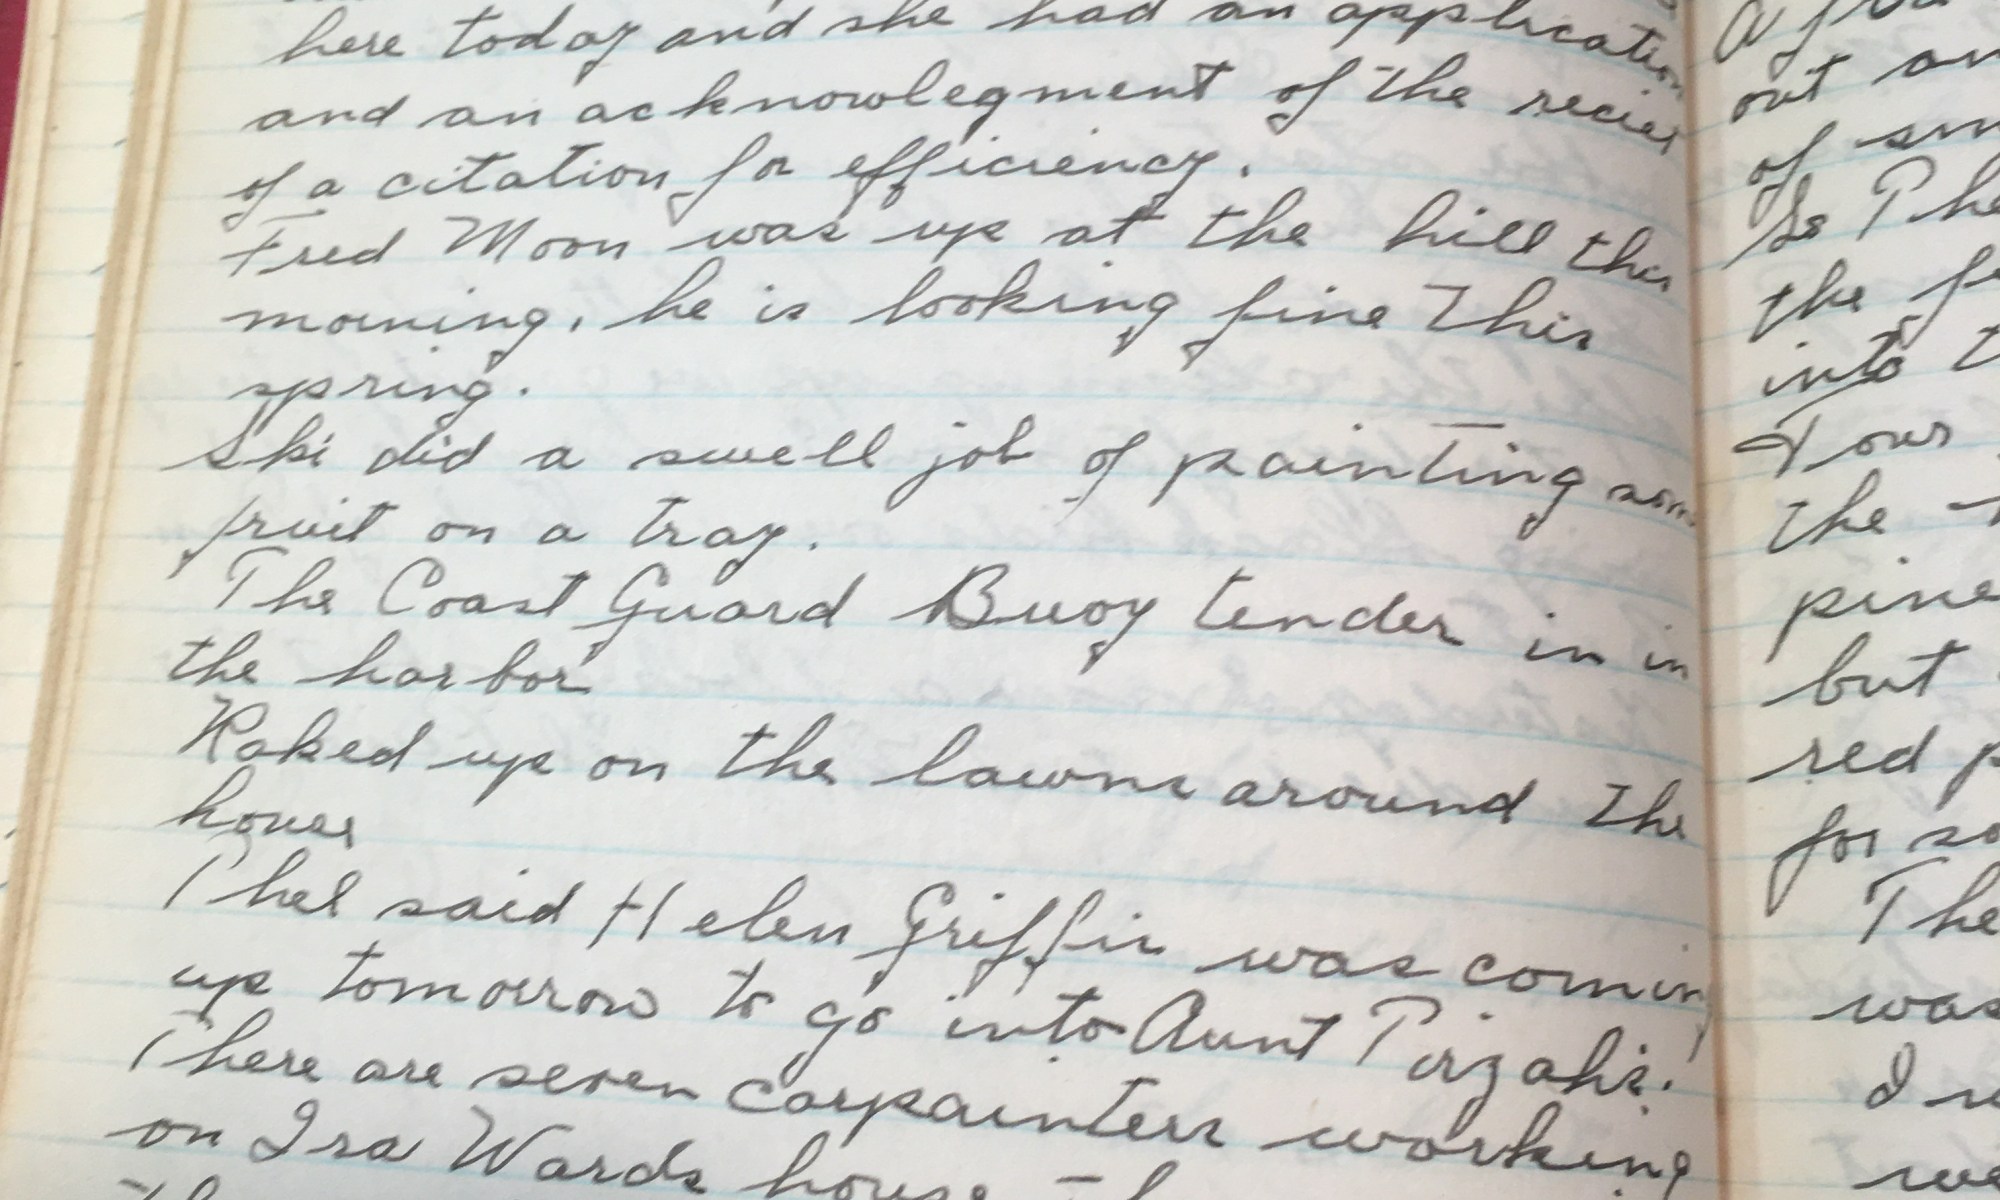 here today and she had an application
and an acknowlegment of the reciet
of a citation for efficiency.
Fred Moon was up at the hill this
morning, he is looking fine this
spring.
Ski did a swell job of painting some
fruit on a tray.
The Coast Guard Buoy tender in in
the harbor
Raked up on the lawns around the
house
Thel said Helen Griffin was coming
up tomorrow to go into Aunt Tirzahs.
There are seven carpainters working
on Ira Wards house
out an
of sm
So The
the
into
Four
the
pine
but
red p
for so
The
was
I
we